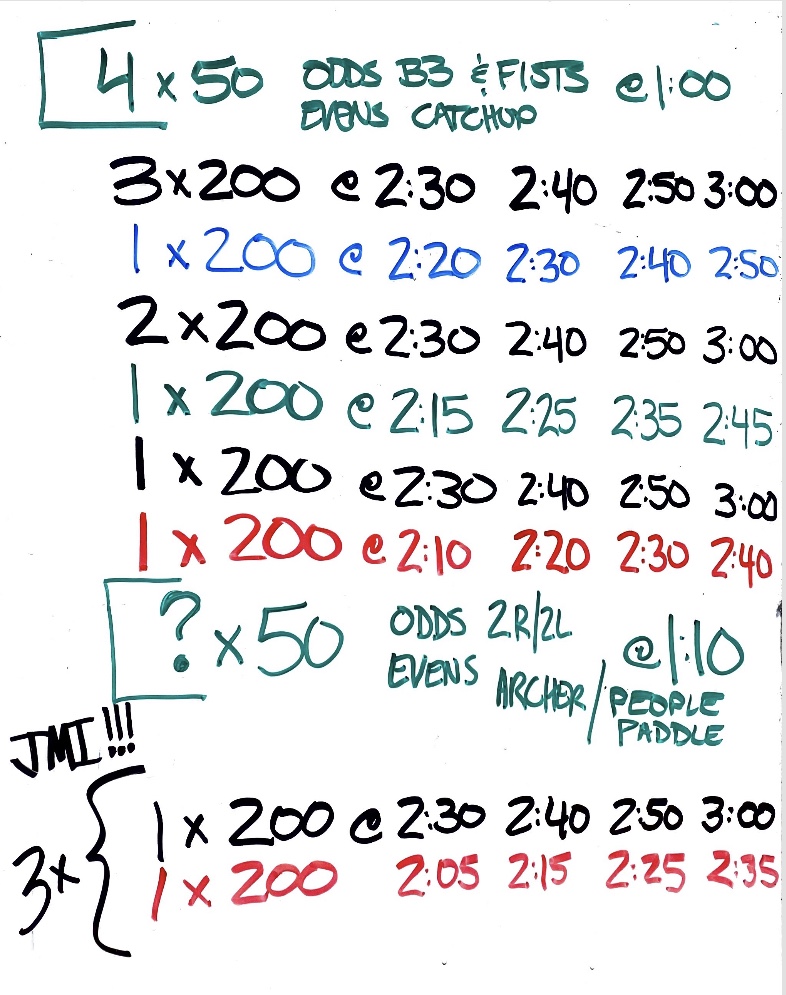 4 x 50 ODDS B3 & FISTS @ 1:00
EVENS CATCHUP
3 x 200 @ 2:30 2:40 2:50 3:00
1 x 200 @ 2:20 2:30 2:40 2:50
2 x 200 @ 2:30 2:40 2:50 3:00
1 x 200 @ 2:15 2:25 2:35 2:45
1 x 200 @ 2:30 2:40 2:50 3:00
1 x 200 @ 2:10 2:20 2:30 2:40
? x 50 ODDS 2R/2L @ 1:10
EVENS ARCHER / PEOPLE
PADDLE
JMI!!!
3x { 1 x 200 @ 2:30 2:40 2:50 3:00
1 x 200 2:05 2:15 2:25 2:35